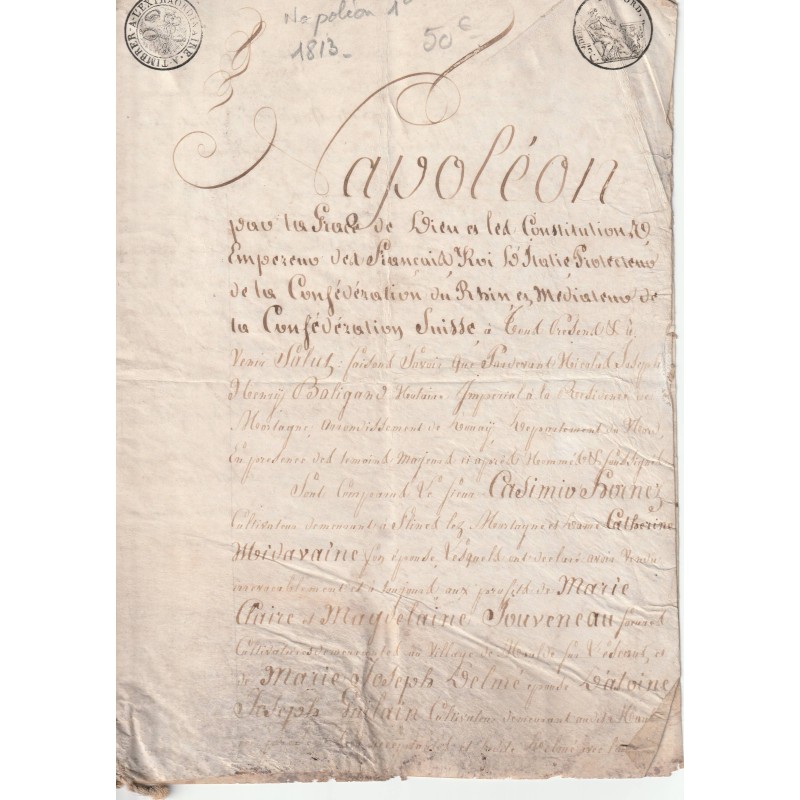 A TIMBRER A L'EXTRAORDINAIRE
ORD.
Napoléon 1er
1813 - 50€
Napoléon
par la Grace de Dieu et les Constitutions
Empereur des Français Roi D'Italie Protecteur
de la Confédération du Rhin et Médiateur de
la Confédération Suisse à Tous Presens & à
Venir Salut: faisons Savoir que Pardevant Nicolas Joseph
Henry Boligand Notaire Imperial à la Residence de
Mortagne, arrondissement de Douay, Departement du Nord,
En presence des temoins Majeurs ci après Nommés & soussignés
Sont Comparus Le sieur Casimir Hornez
Cultivateur demeurant à Flines lez Mortagne et Dame Catherine
Midavaine son épouse, Lesquels ont declaré avoir Vendu
irrevocablement et à toujours aux profits de Marie
Claire et Magdelaine Jouveneau
Cultivatrices demeurantes au Village de et
de Marie Joseph Delmé épouse D'Antoine
Joseph Cultivateur demeurant audit